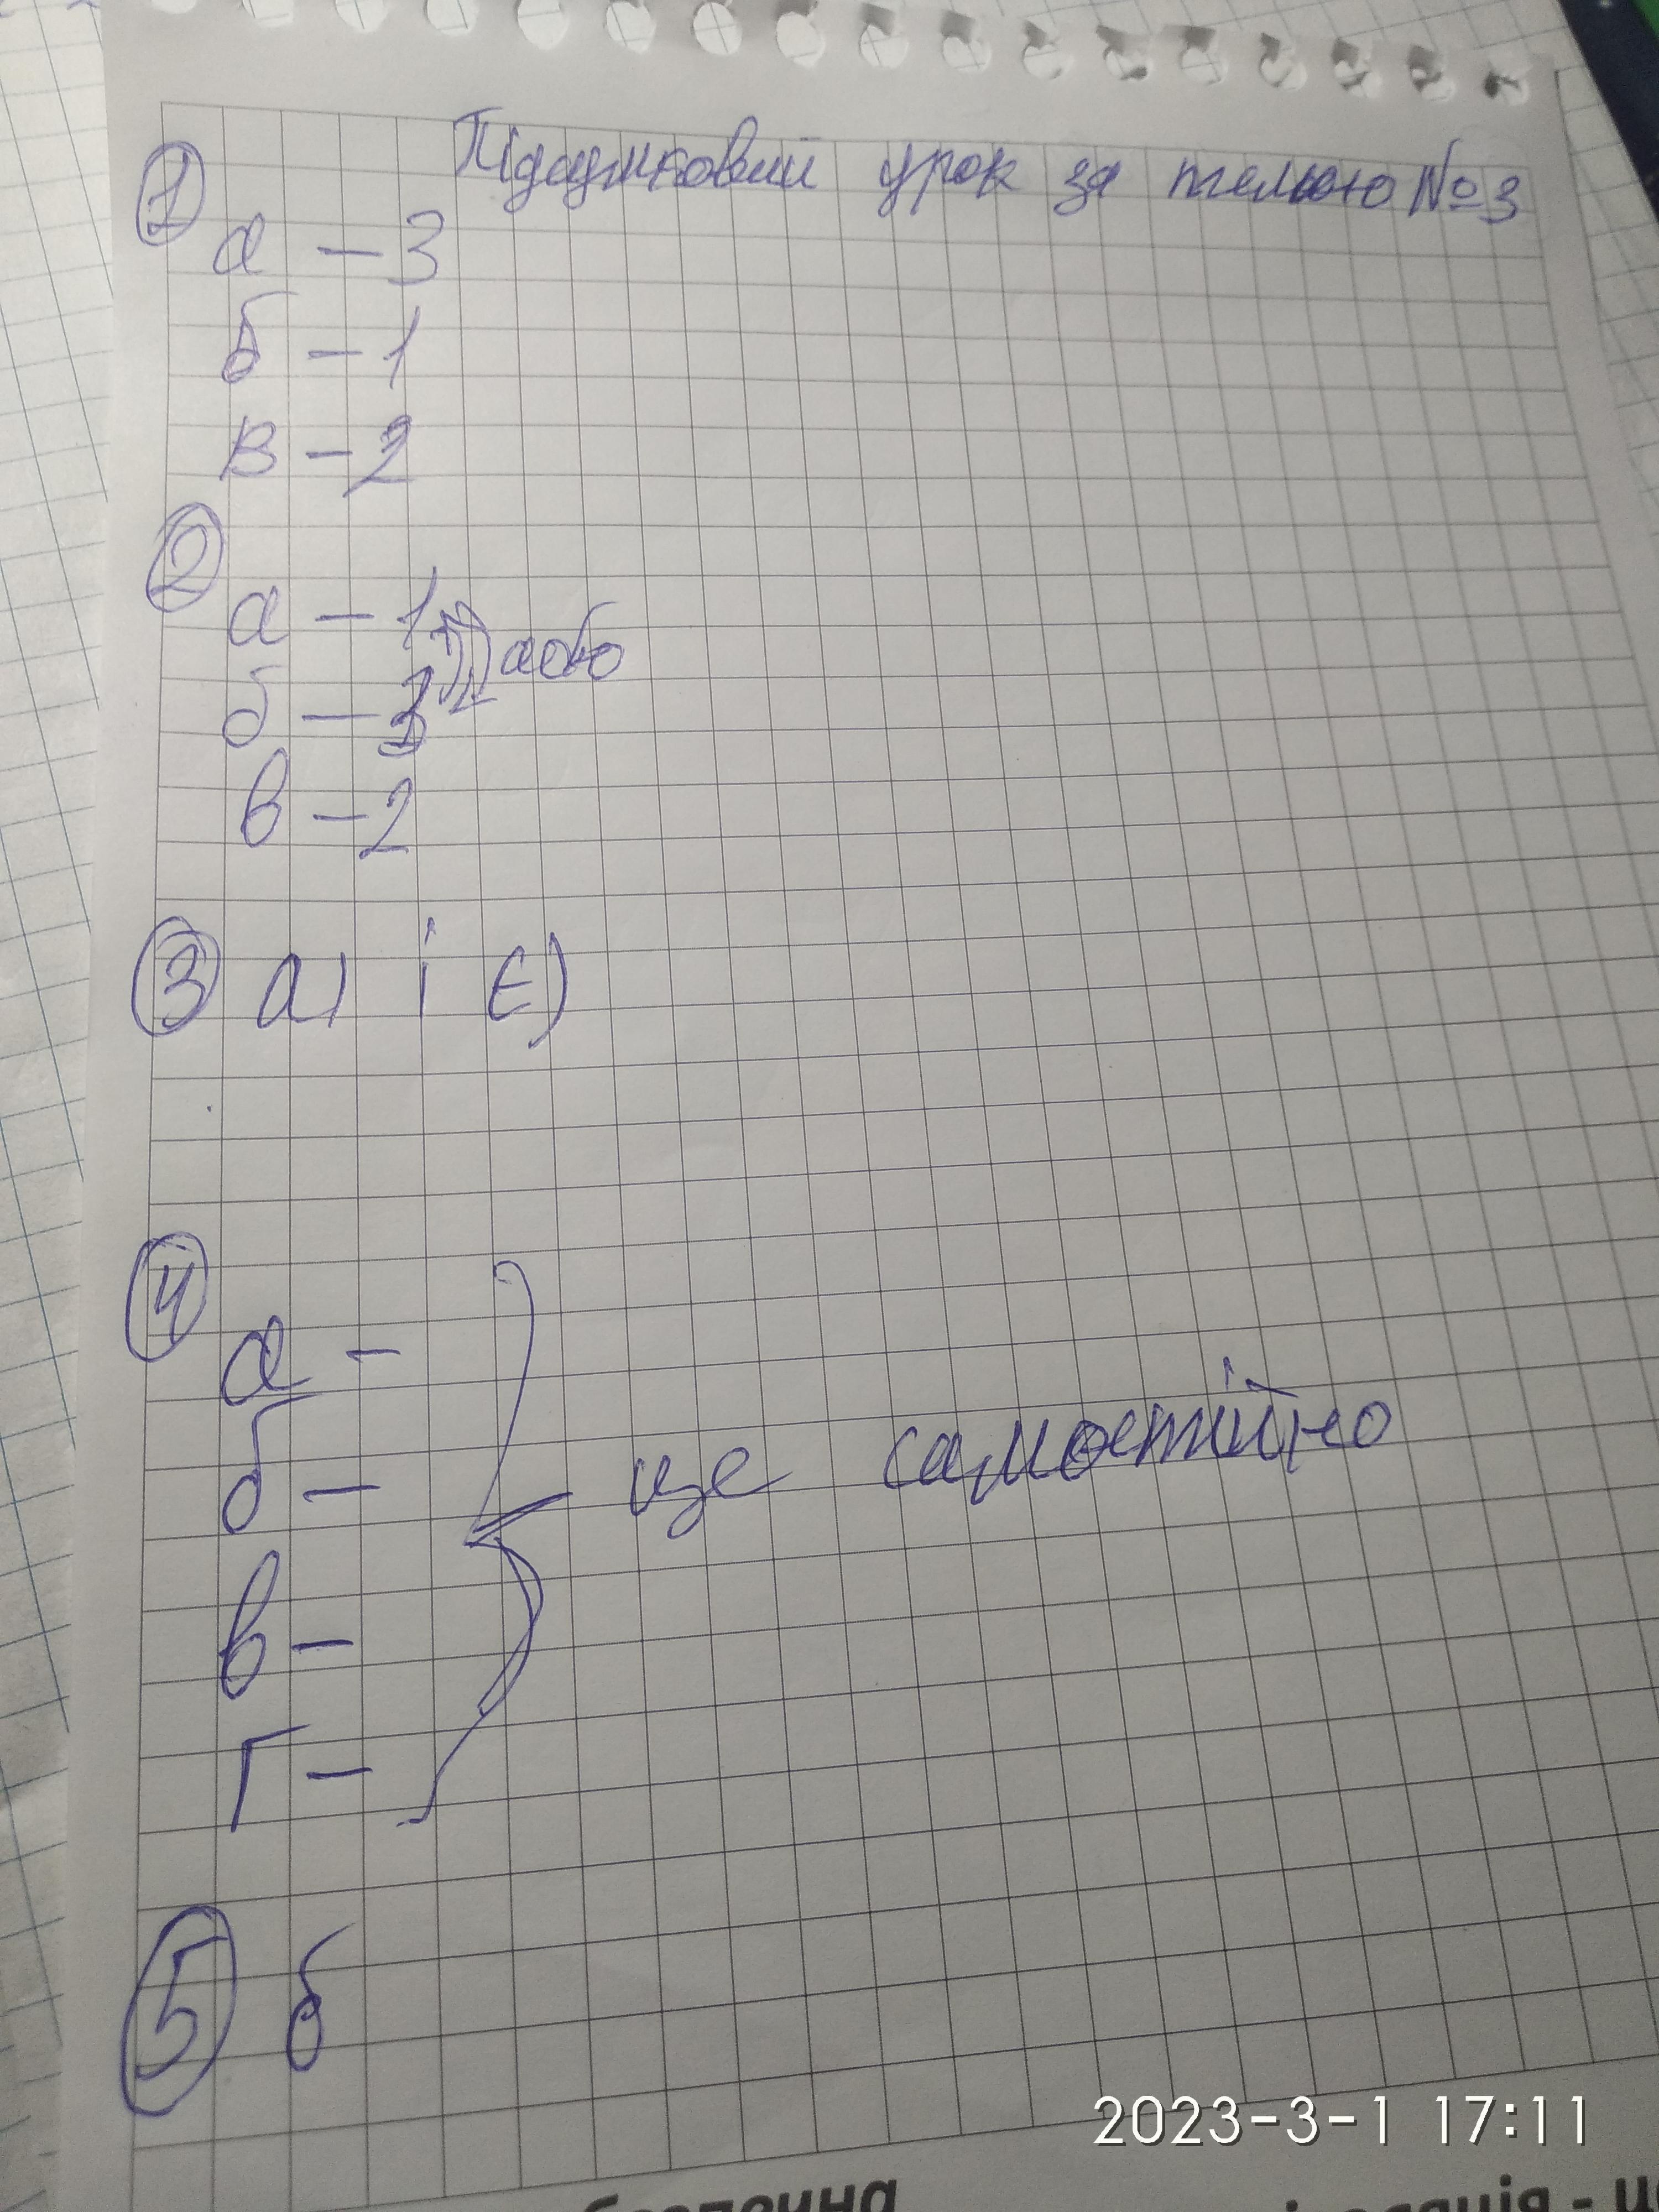 Підсумковий урок за темою №3
1
а - 3
б - 1
в - 2
2
а - 1
б - 3
або
в - 2
3 а) і є)
4
а -
б -
в -
г -
це самостійно
5 б
2023-3-1 17:11